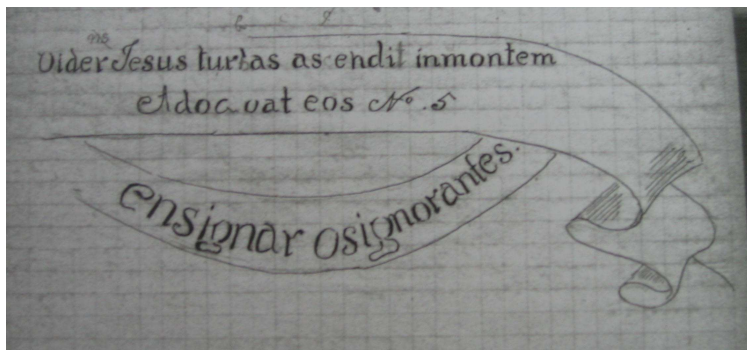 Vider Jesus turbas as cendit inmontem
etdoc uat eos No. 5
ensignar osignorantes.